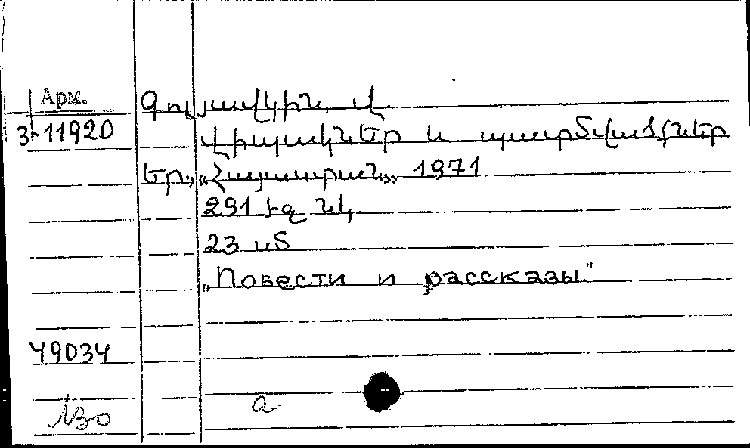 Арм.
3-11920
Գուլավկին, Վ
Վիպակներ և պատմվածքներ
Եր., «Հայաստան» 1971
291 էջ նկ,
23 սմ
„Повести и рассказы"
49034
а